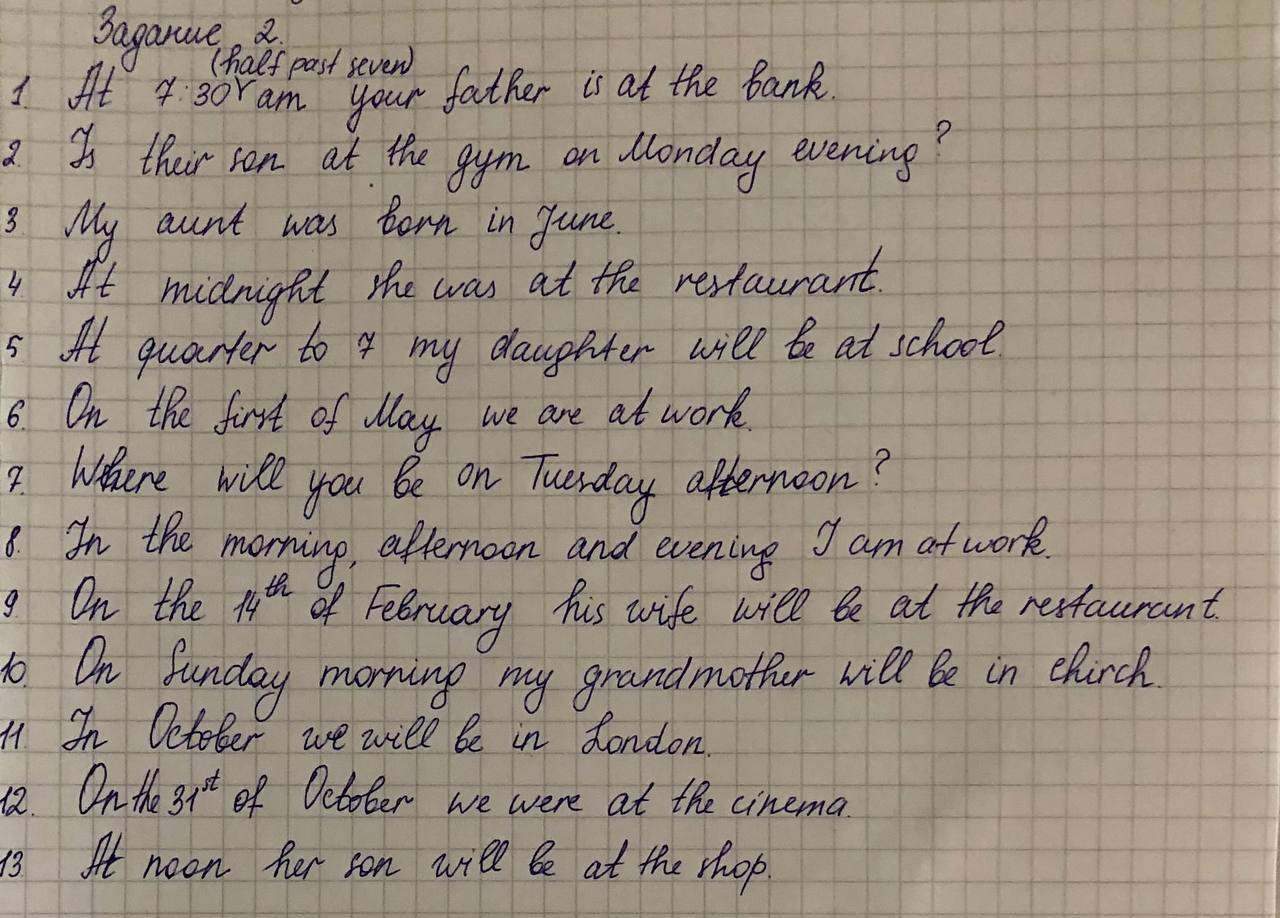 Задание 2.
(half past seven)
1. At 7:30 am your father is at the bank.
2. Is their son at the gym on Monday evening?
3 My aunt was born in June.
4 At midnight she was at the restaurant.
5 At quarter to 7 my daughter will be at school.
6. On the first of May we are at work.
7. Where will you be on Tuesday afternoon?
8. In the morning, afternoon and evening I am at work.
9. On the 14th of February his wife will be at the restaurant.
10. On Sunday morning my grandmother will be in chirch.
11. In October we will be in London.
12. On the 31st of October we were at the cinema.
13 At noon her son will be at the shop.